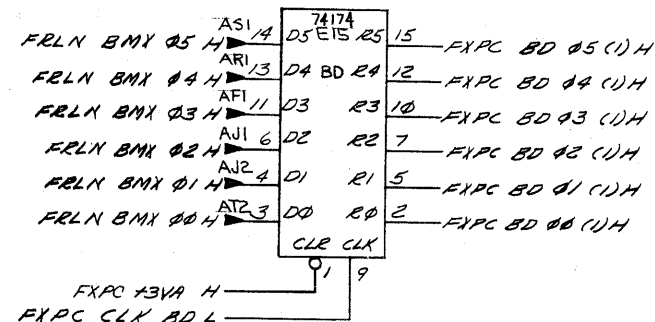 74174
E15
BD
FRLN BMX Ø5 H AS1 14 D5 R5 15 FXPC BD Ø5 (1) H
FRLN BMX Ø4 H AR1 13 D4 R4 12 FXPC BD Ø4 (1) H
FRLN BMX Ø3 H AF1 11 D3 R3 1Ø FXPC BD Ø3 (1) H
FRLN BMX Ø2 H AJ1 6 D2 R2 7 FXPC BD Ø2 (1) H
FRLN BMX Ø1 H AJ2 4 D1 R1 5 FXPC BD Ø1 (1) H
FRLN BMX ØØ H AT2 3 DØ RØ 2 FXPC BD ØØ (1) H
CLR CLK
1 9
FXPC +3VA H
FXPC CLK BD L